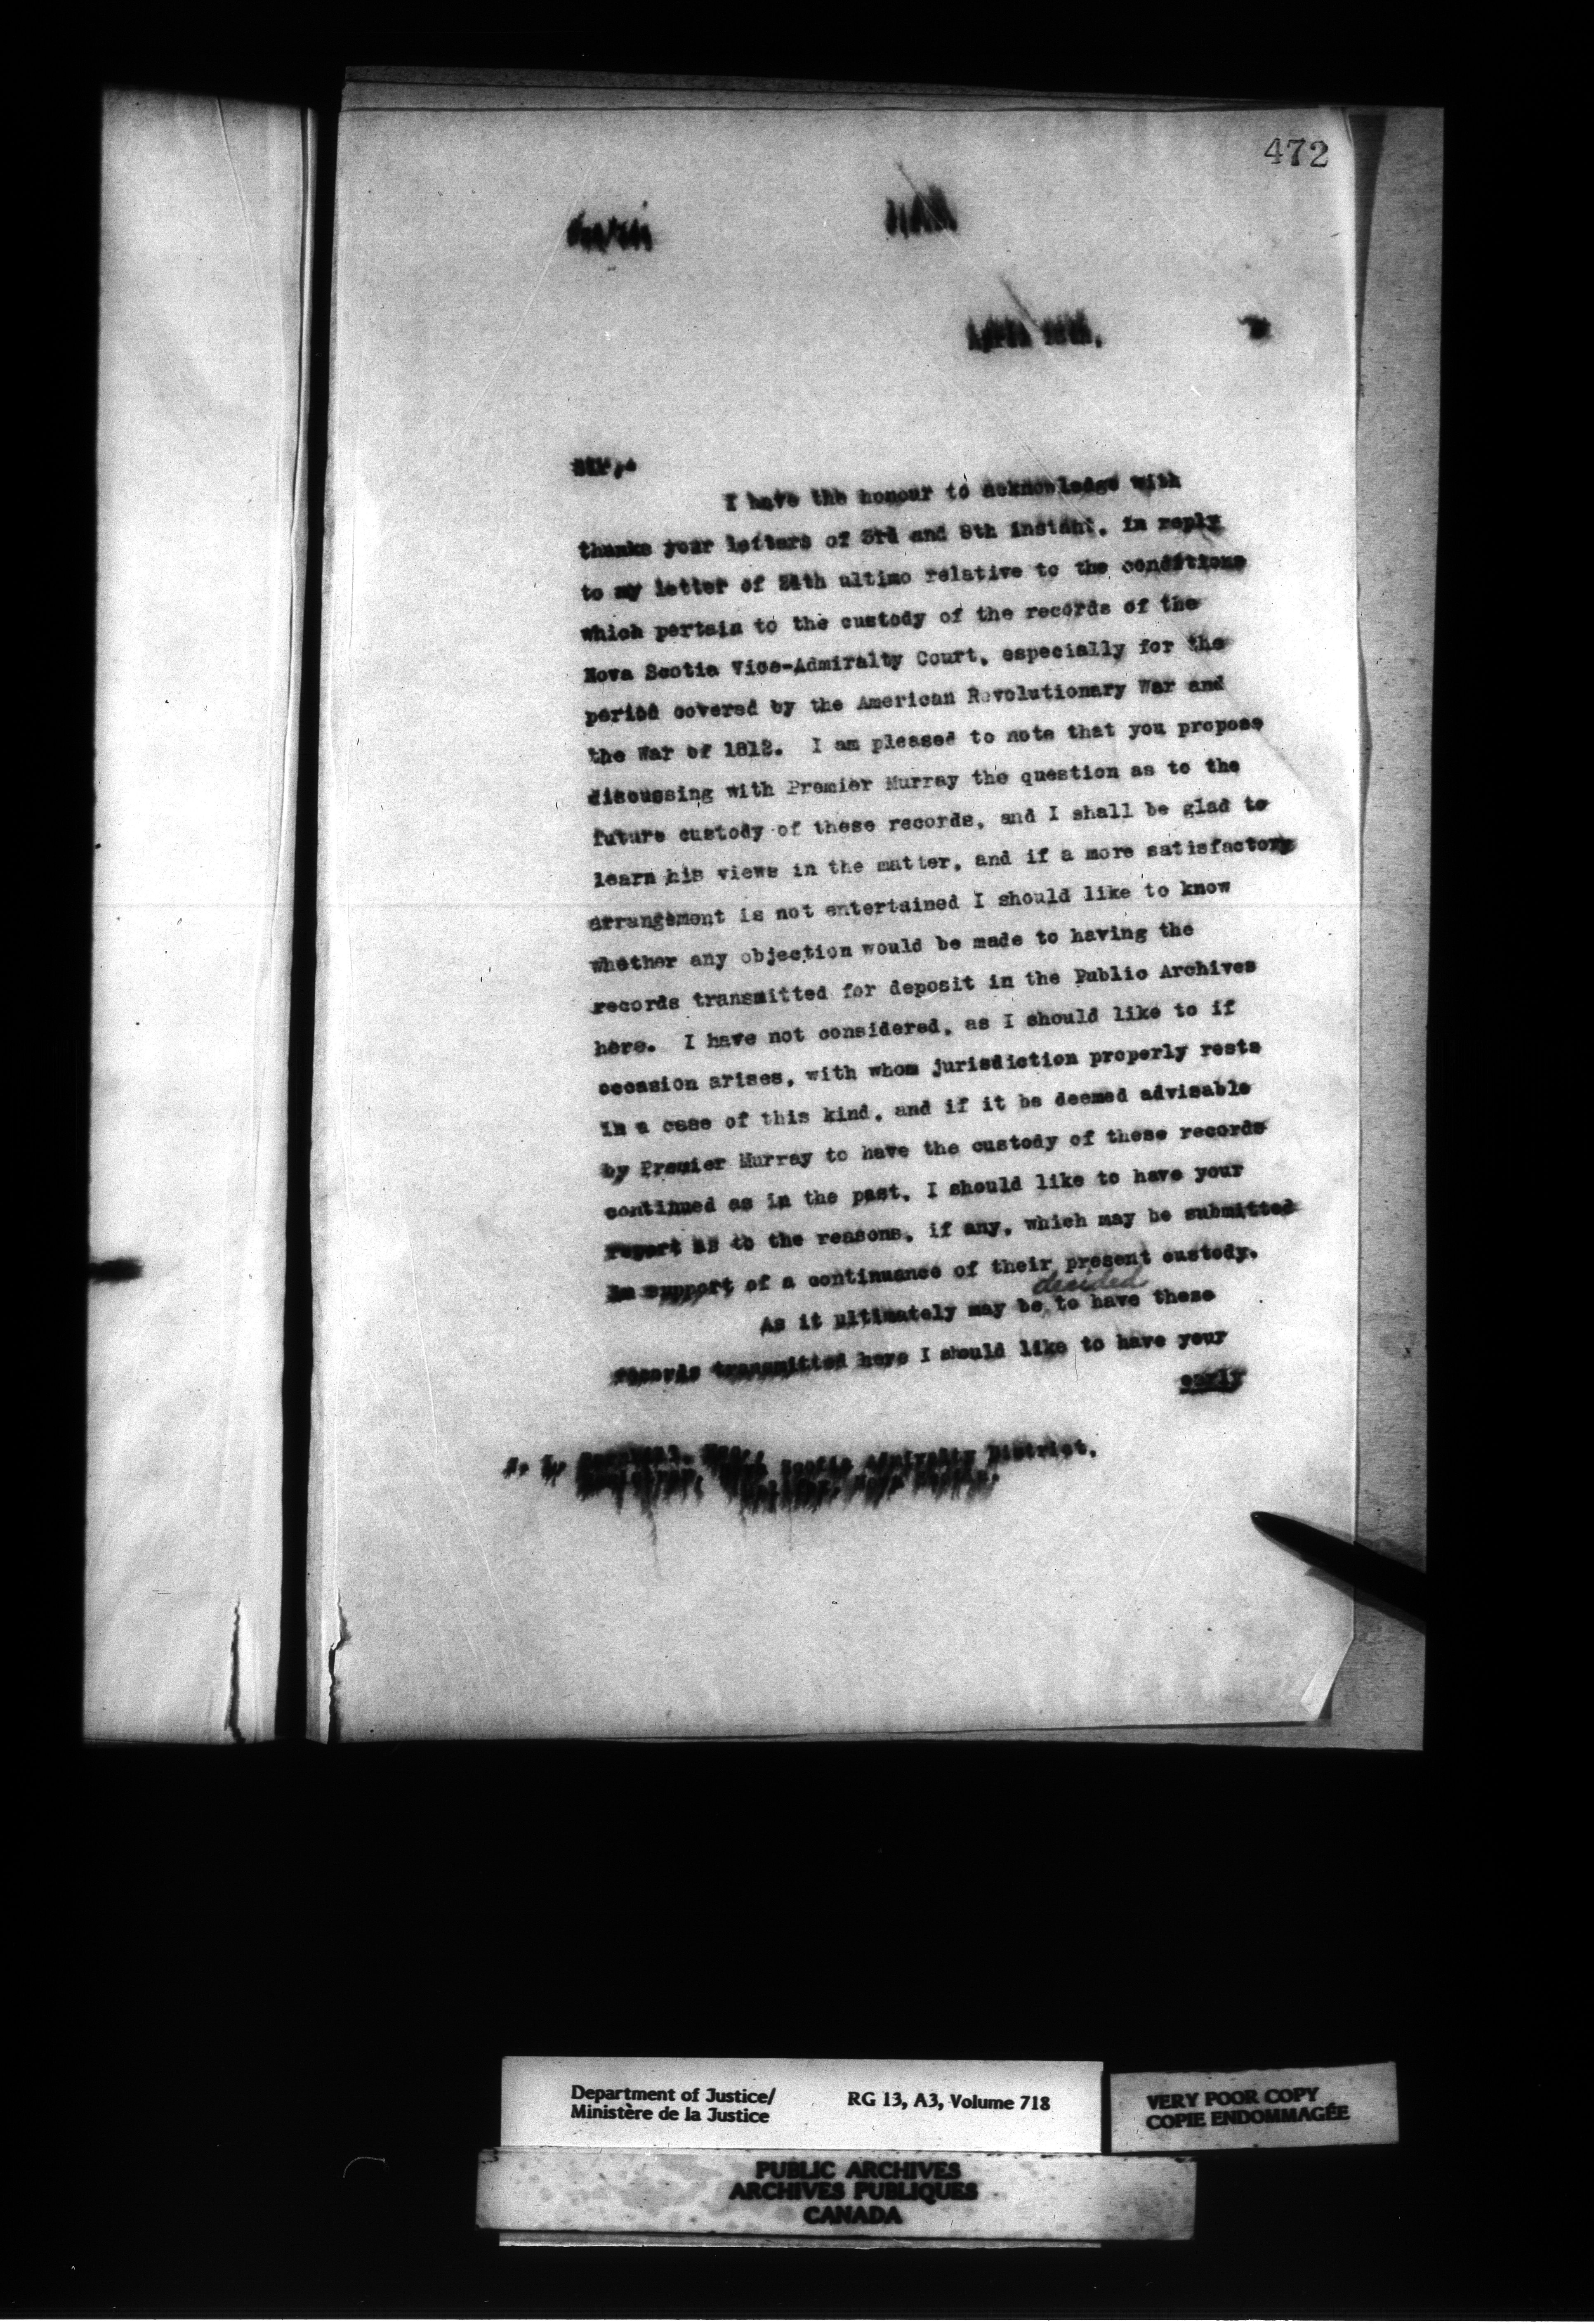 472
April
Sir,-
I have the honour to acknowledge with
thanks your letters of 3rd and 8th instant, in reply
to my letter of 24th ultimo relative to the conditions
which pertain to the custody of the records of the
Nova Scotia Vice-Admiralty Court, especially for the
period covered by the American Revolutionary War and
the War of 1812. I am pleased to note that you propose
discussing with Premier Murray the question as to the
future custody of these records, and I shall be glad to
learn his views in the matter, and if a more satisfactory
arrangement is not entertained I should like to know
whether any objection would be made to having the
records transmitted for deposit in the Public Archives
here. I have not considered, as I should like to if
occasion arises, with whom jurisdiction properly rests
in a case of this kind, and if it be deemed advisable
by Premier Murray to have the custody of these records
continued as in the past, I should like to have your
report as to the reasons, if any, which may be submitted
in support of a continuance of their present custody.
decided
As it ultimately may be to have these
records transmitted here I should like to have your
early
Scotia Admiralty District.
Department of Justice/
Ministère de la Justice
RG 13, A3, Volume 718
VERY POOR COPY
COPIE ENDOMMAGÉE
PUBLIC ARCHIVES
ARCHIVES PUBLIQUES
CANADA